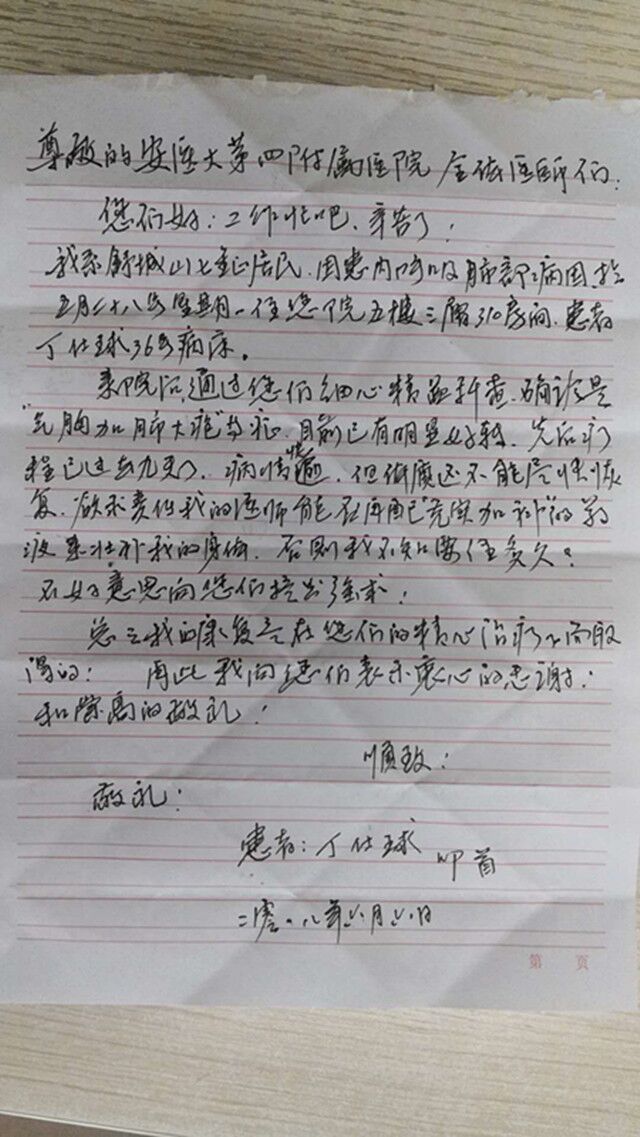 尊敬的安医大第四附属医院全体医师们：
您们好：工作忙吧，辛苦了！
我系舒城山七镇居民，因患内呼吸肺部病因，于
五月二十八号星期一住您院五楼三层310房间，患者
丁仕球36号病床。
来院后，通过您们细心精查，确诊是
"气胸加肺大疱"等症，目前已有明显好转，先后疗
程已过去九天，病情，但体质还不能尽快恢
复，欲求责任我的医师能在再自己"充实加补"的药
液里壮补我的身体，否则我不知要住多久？
不好意思向您们提出强求！
总之我的康复是在您们的精心治疗下而取
得的！用此我向您们表示衷心的感谢！
和崇高的敬礼！
顺致：
敬礼！
患者：丁仕球 叩首
二零一八年六月六日
第 页